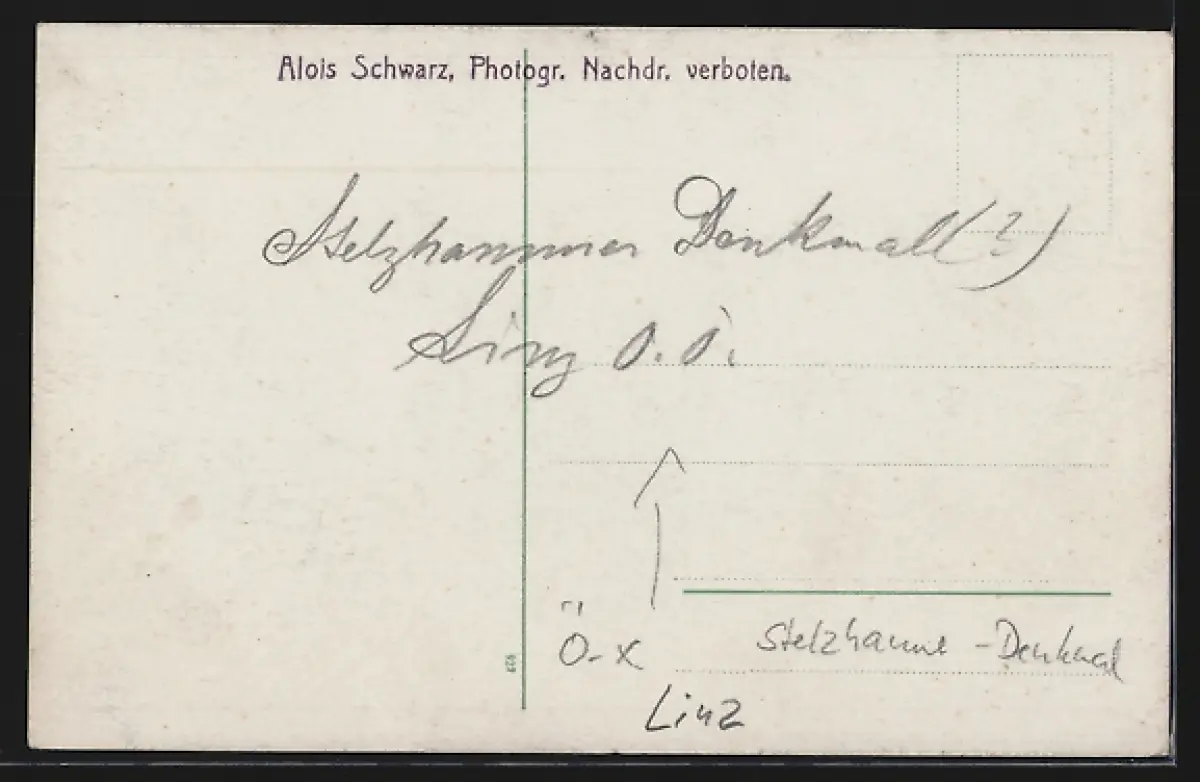 Alois Schwarz, Photogr. Nachdr. verboten.
Stelzhammer Denkmall (?)
Linz O.Ö.
Ö-X
Stelzhamme - Denkmal
Linz